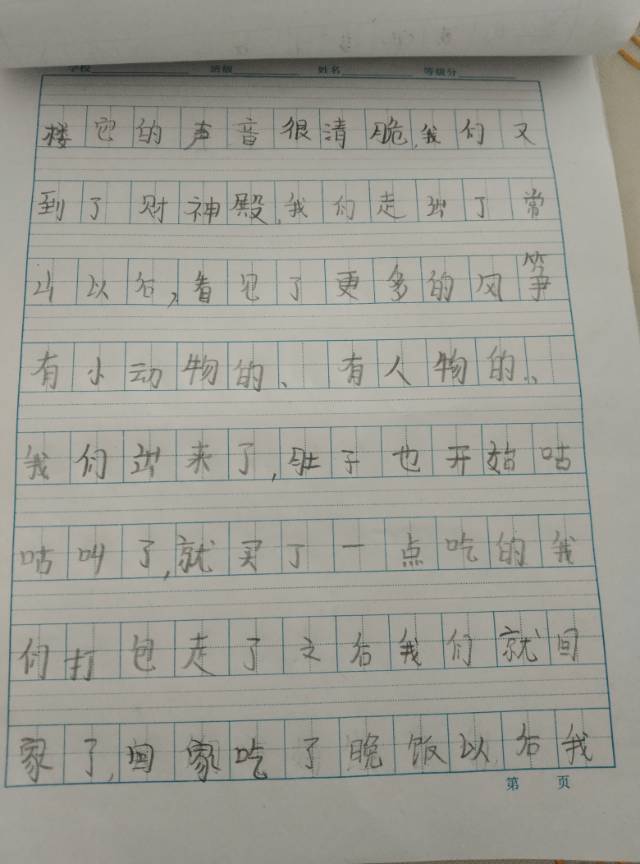 学校 班级 姓名 等级分
楼它的声音很清脆,我们又
到了财神殿,我们走出了常
山以后,看见了更多的风筝
有小动物的、有人物的、
我们出来了,肚子也开始咕
咕叫了,就买了一点吃的我
们打包走了之后我们就回
家了,回家吃了晚饭以后我
第 页